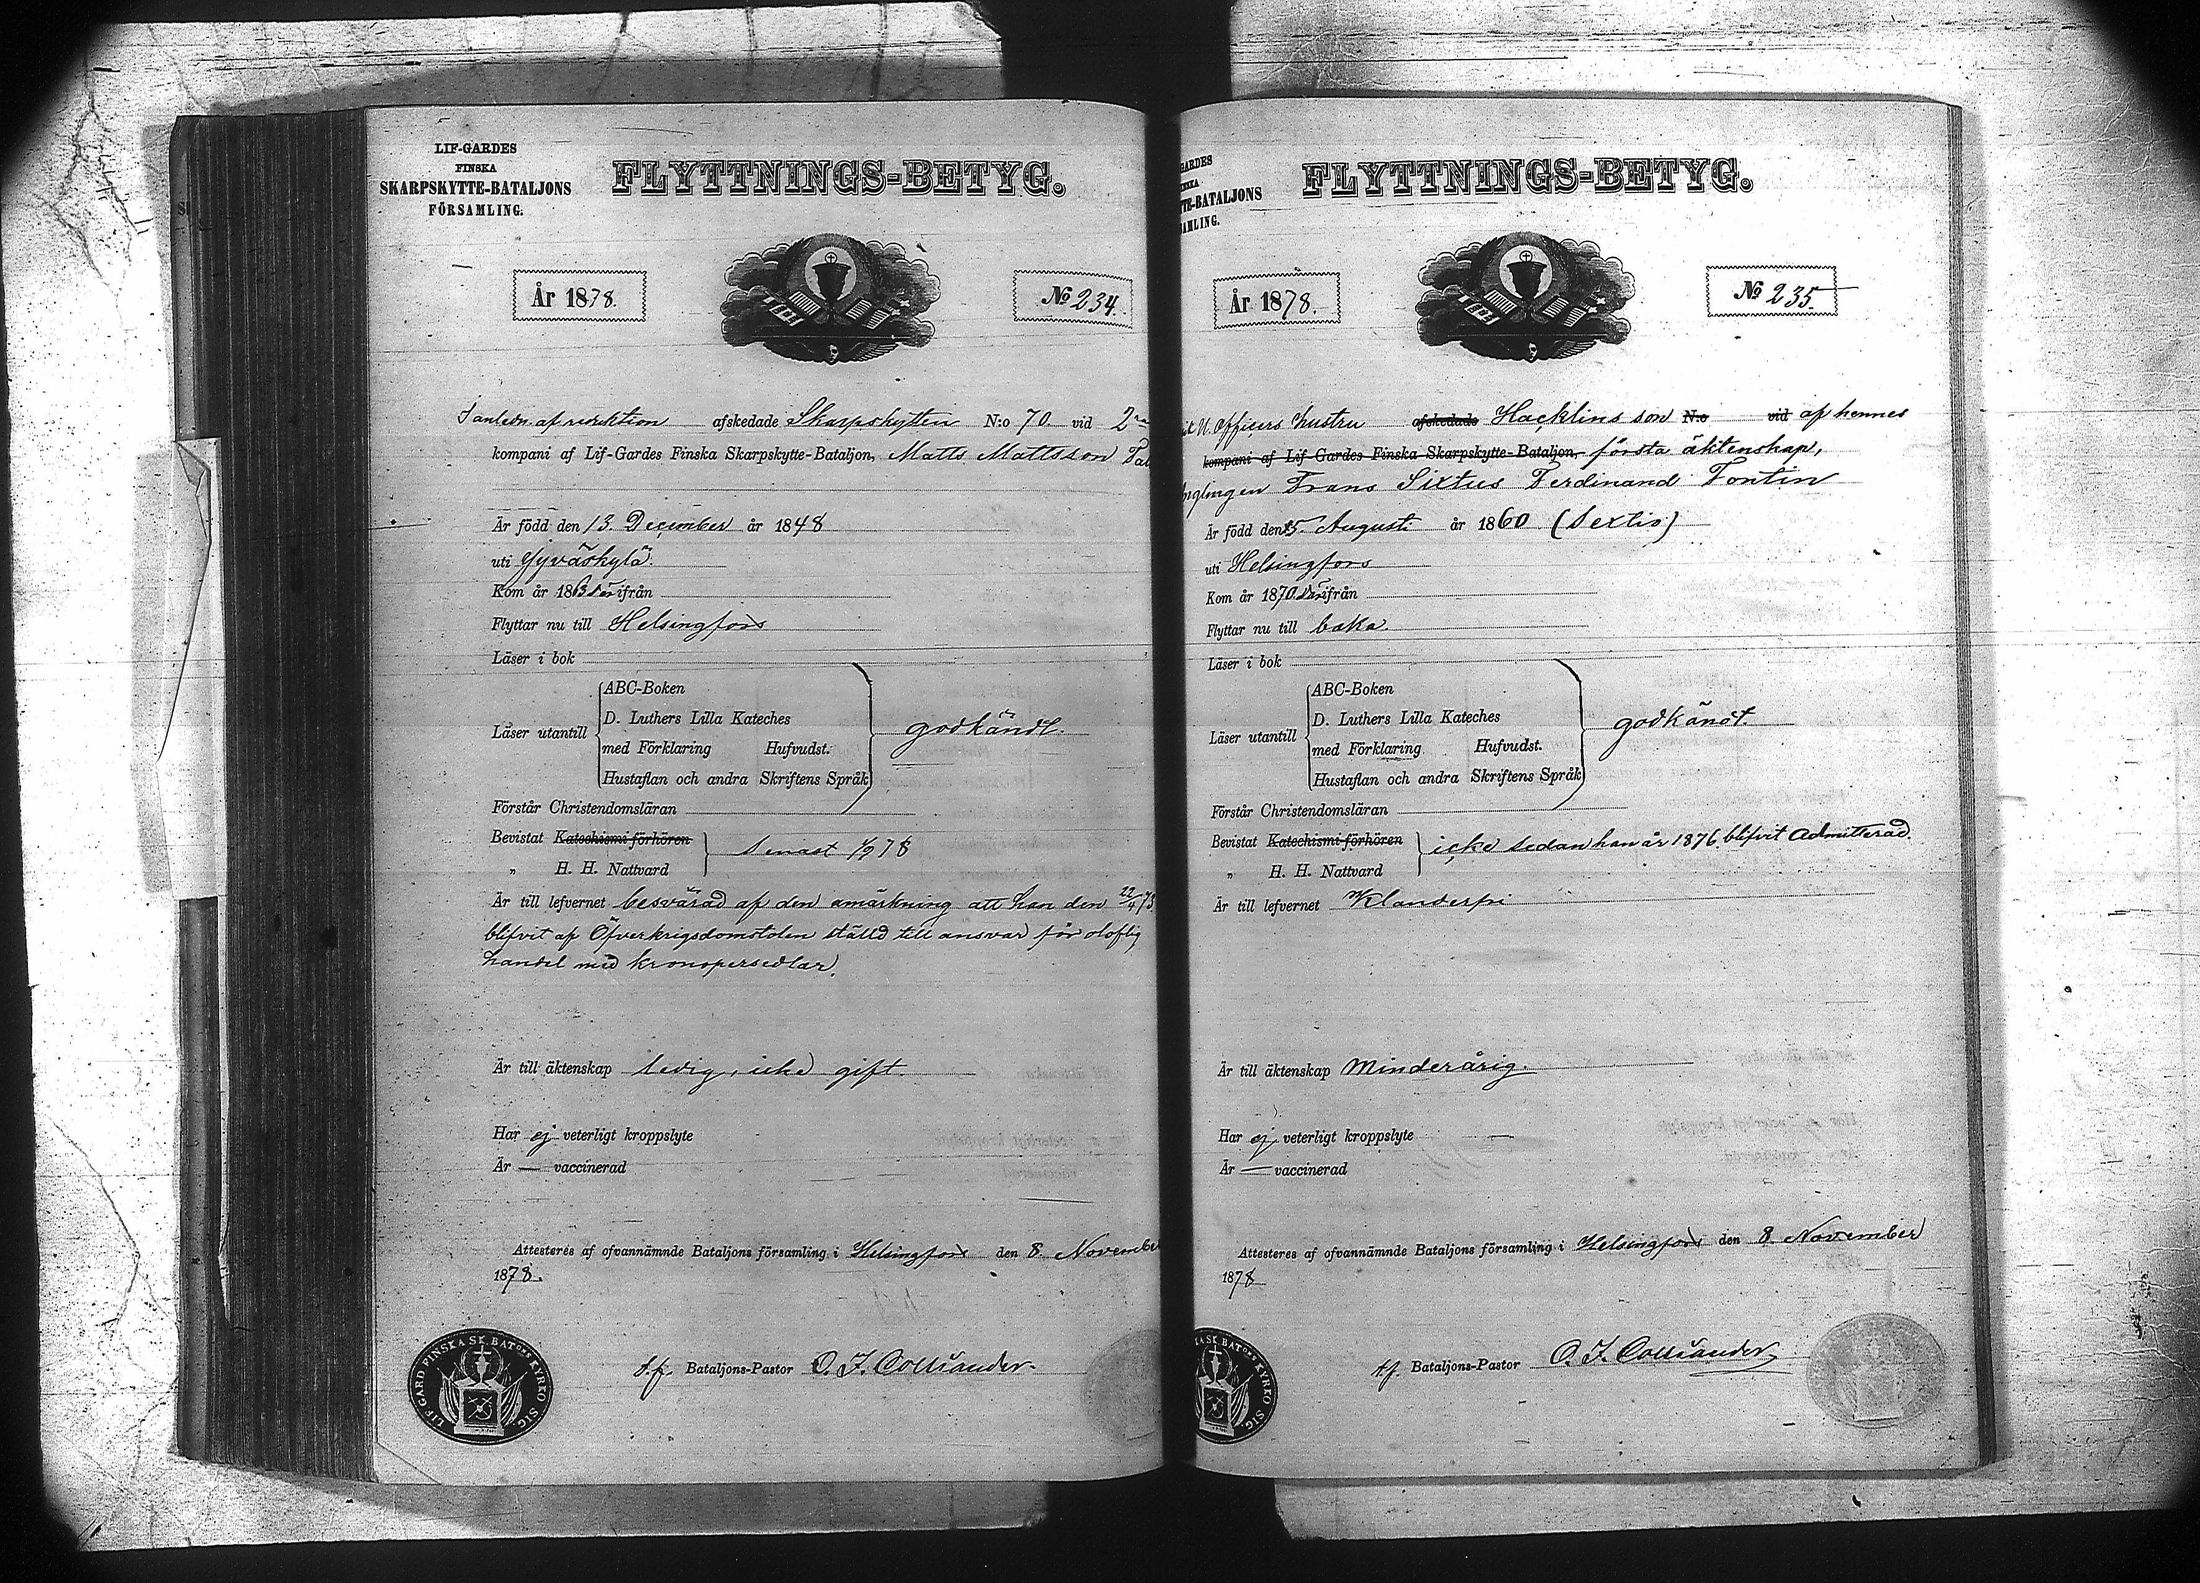 LIF-GARDES
FINSKA
SKARPSKYTTE-BATALJONS
FÖRSAMLING.
FLYTTNINGS-BETYG.
År 1878.
No 234.
I anledn. af reduktion afskedade Skarpskytten N:o 70 vid 2
kompani af Lif-Gardes Finska Skarpskytte-Bataljon, Matts Mattsson
Är född den 13. December år 1848
uti Jyväskylä.
Kom år 186 ifrån
Flyttar nu till Helsingfors
Läser i bok
Läser utantill
ABC-Boken
D. Luthers Lilla Kateches
med Förklaring Hufvudst.
Hustaflan och andra Skriftens Språk
godkändt.
Förstår Christendomsläran
Bevistat Katechismi förhören
„ H. H. Nattvard
senast 78
Är till lefvernet besvärad af den anmärkning att han den 22/4 73
blifvit af Öfverkrigsdomstolen ställd till ansvar för oloflig
handel med kronopersedlar.
Är till äktenskap ledig, icke gift.
Har ej veterligt kroppslyte
Är — vaccinerad
Attesteres af ofvannämnde Bataljons församling i Helsingfors den 8. November
1878.
t.f. Bataljons-Pastor O. I. Colliander.
LIF GARD FINSKA SK BAT:ONS KYRKO SIG.
GARDES
TTE-BATALJONS
FLYTTNINGS-BETYG.
År 1878.
No 235.
U. Officers hustru afskedade Hacklins son N:o vid af hennes
kompani af Lif-Gardes Finska Skarpskytte-Bataljon, första äktenskap,
ynglingen Frans Sixtus Ferdinand Fontin
Är född den 5. Augusti år 1860 (Sextio)
uti Helsingfors
Kom år 1870 ifrån
Flyttar nu till baka.
Läser i bok
Läser utantill
ABC-Boken
D. Luthers Lilla Kateches
med Förklaring Hufvudst.
Hustaflan och andra Skriftens Språk
godkändt.
Förstår Christendomsläran
Bevistat Katechismi förhören
„ H. H. Nattvard
icke sedan han år 1876 blifvit Admitterad.
Är till lefvernet Klanderfri
Är till äktenskap Minderårig.
Har ej veterligt kroppslyte
Är — vaccinerad
Attesteres af ofvannämnde Bataljons församling i Helsingfors den 8. November
1878
t.f. Bataljons-Pastor O. I. Colliander
SK BAT:ONS KYRKO SIG.